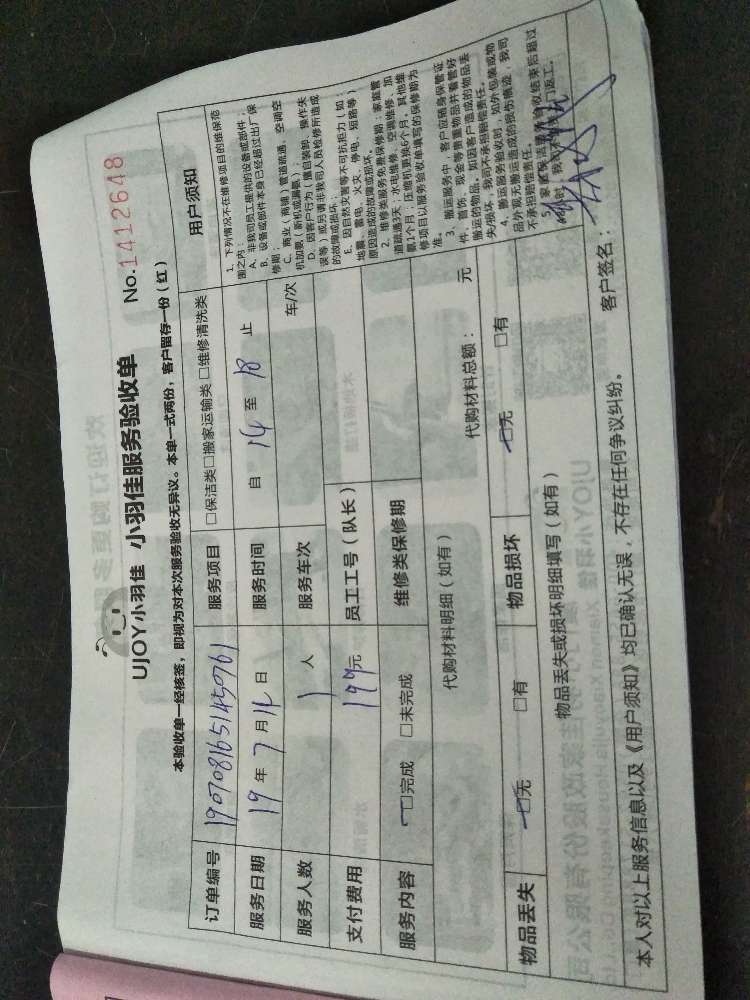 UJOY小羽佳 小羽佳服务验收单 No.1412648
本验收单一经核签，即视为对本次服务验收无异议。本单一式两份，客户留存一份（红）
订单编号 190708165145761 服务项目 □保洁类□搬家运输类□维修清洗类
服务日期 19年7月14日 服务时间 自 14 至 18 止
服务人数 1人 服务车次 车/次
支付费用 199元 员工工号（队长）
服务内容 □完成 □未完成 维修类保修期
代购材料明细（如有） 代购材料总额： 元
物品丢失 □无 □有 物品损坏 □无 □有
物品丢失或损坏明细填写（如有）
用户须知
1、下列情况不在维修项目的维保范
围之内：
A、非我司员工提供的设备或部件；
B、设备或部件本身已经超过出厂保
修期；
C、商业（商铺）管道疏通、空调空
机加氨（新机或漏氨）；
D、因客户行为（擅自装卸、操作失
误等）或另请非我司人员检修所造成
的故障或损坏；
E、因自然灾害等不可抗拒力（如：
地震、雷电、火灾、停电、短路等）
原因造成的故障或损坏。
2、维修类服务免费保修期：家庭管
道疏通3天；水电维修、空调维修、加
氨1个月；压缩机更换6个月，其他维
修项目以服务验收单填写的保修期为
准。
3、搬运服务中，客户应随身保管证
件、首饰、现金等贵重物品并看管好
搬运的物品，如因客户造成的物品丢
失/损坏，我司不承担赔偿责任。
4、搬运服务验收时，如外包装或物
品外观无搬运造成的损伤痕迹，我司
不承担赔偿责任。
5、家
结束后超过
返工。
本人对以上服务信息以及《用户须知》均已确认无误，不存在任何争议纠纷。 客户签名：